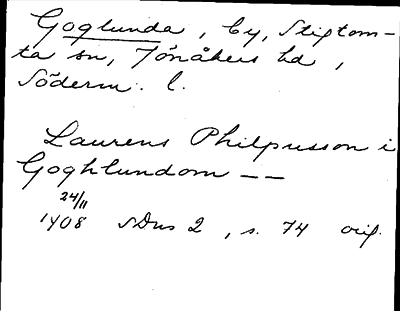 Goglunda, by, Stigtom-
ta sn, Jönåkers hd,
Söderm. l.
Laurens Philpusson i
Goghlundom --
24/11
1408 SDns 2, s. 74 orig.